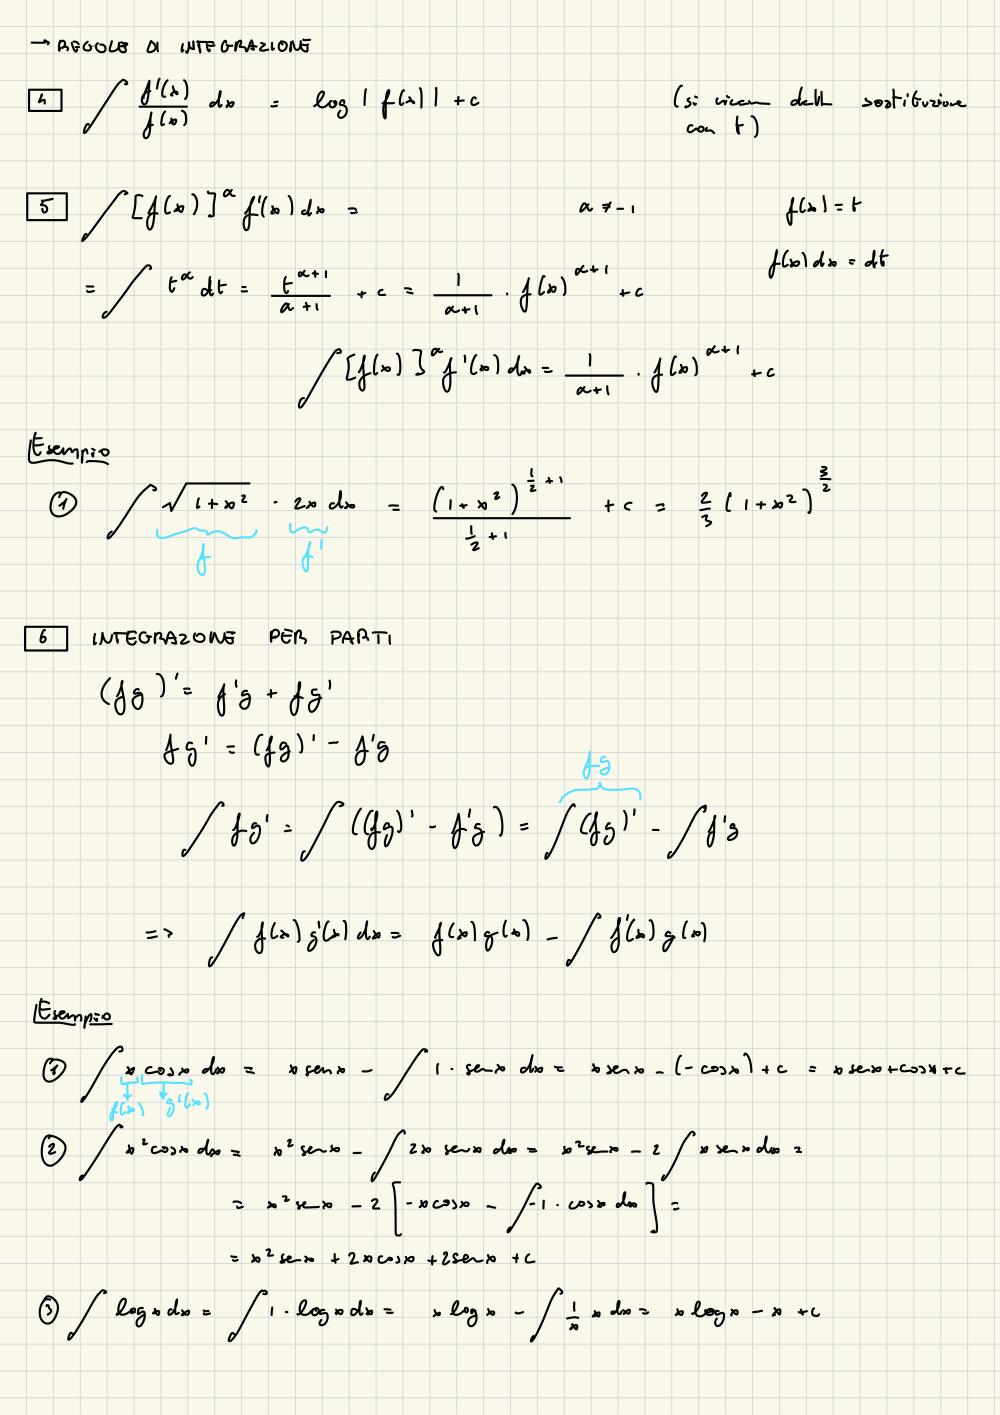 → REGOLE DI INTEGRAZIONE
4 ∫ f'(x)/f(x) dx = log |f(x)| + c (si ricava dalla sostituzione
con t)
5 ∫ [f(x)]^α f'(x) dx = α ≠ -1 f(x) = t
f(x) dx = dt
= ∫ t^α dt = t^(α+1)/(α+1) + c = 1/(α+1) · f(x)^(α+1) + c
∫ [f(x)]^α f'(x) dx = 1/(α+1) · f(x)^(α+1) + c
Esempio
① ∫ √(1+x²) · 2x dx = (1+x²)^(1/2+1)/(1/2+1) + c = 2/3 (1+x²)^(3/2)
f f'
6 INTEGRAZIONE PER PARTI
(fg)' = f'g + fg'
fg' = (fg)' - f'g
fg
∫ fg' = ∫ ((fg)' - f'g) = ∫ (fg)' - ∫ f'g
=> ∫ f(x) g'(x) dx = f(x) g(x) - ∫ f'(x) g(x)
Esempio
① ∫ x cosx dx = x senx - ∫ 1 · senx dx = x senx - (-cosx) + c = x senx + cosx + c
f(x) g'(x)
② ∫ x² cosx dx = x² senx - ∫ 2x senx dx = x² senx - 2 ∫ x senx dx =
= x² senx - 2 [-x cosx - ∫ -1 · cosx dx] =
= x² senx + 2x cosx + 2 senx + c
③ ∫ log x dx = ∫ 1 · log x dx = x log x - ∫ 1/x x dx = x log x - x + c